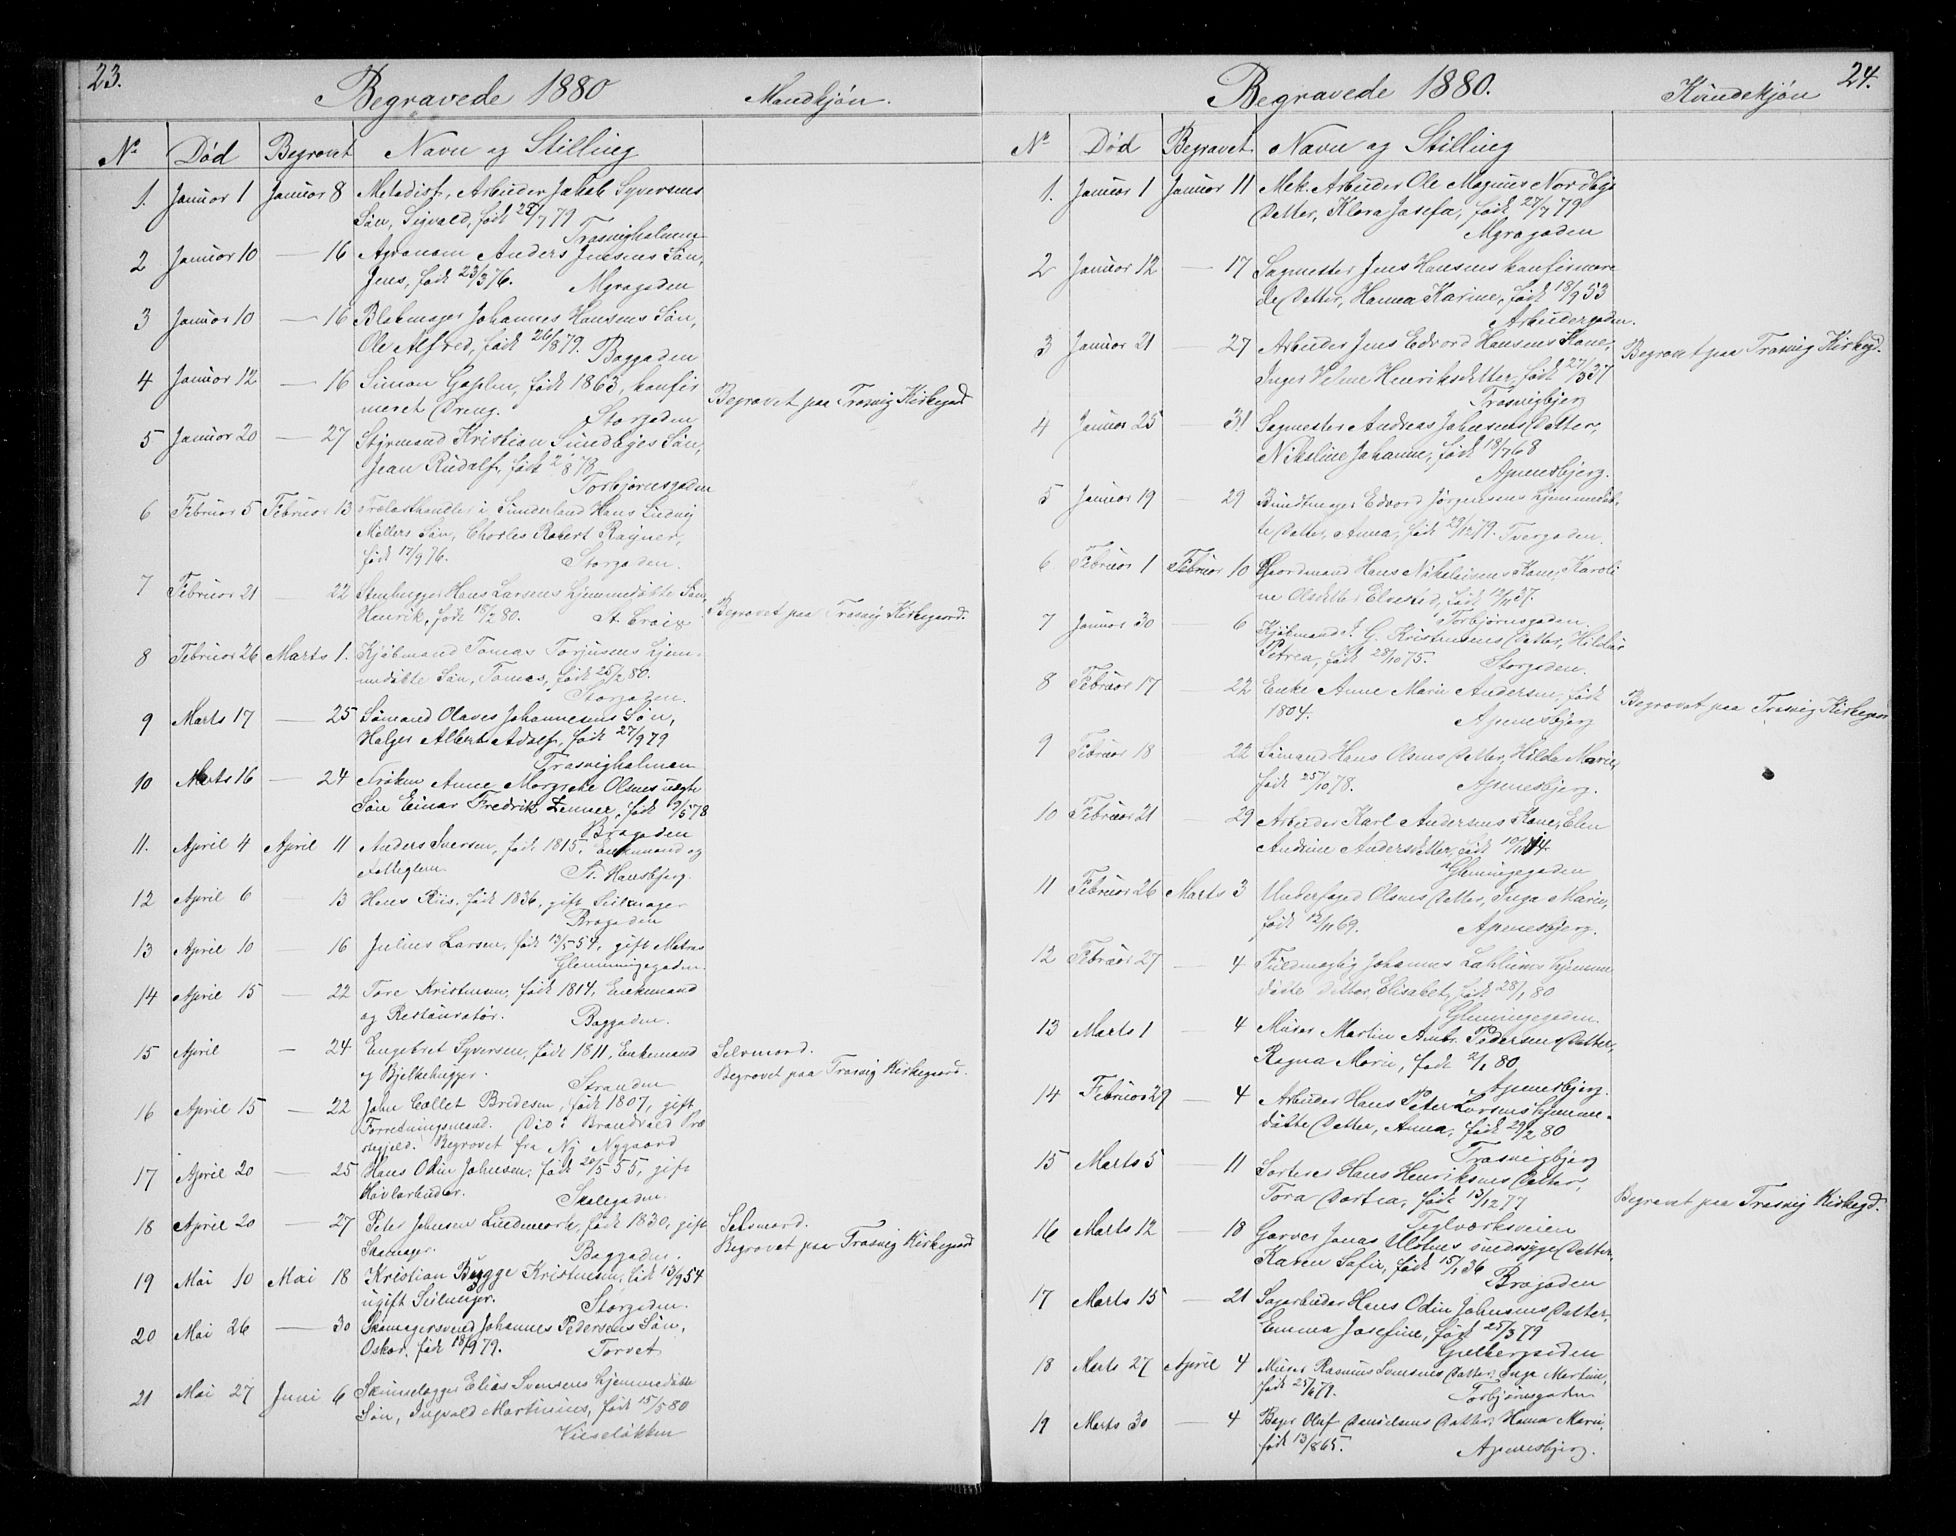 23.
Begravede 1880 Mandkjøn.
No Død Begravet Navn og Stilling
1. Januar 1 Januar 8 Metodist, Arbeider Jakob Syversens
Søn, Sigvald, født /7 79
Trosvigholmen
2 Januar 10 — 16 Agronom Anders Jensens Søn,
Jens, født 23/3 76. Myragaden
3 Januar 10 — 16 Blokmager Johannes Hansens Søn,
Ole Alfred, født 26/8 79. Baggaden
4 Januar 12 — 16 Simon Goplen, født 1863, konfir
meret Dreng. Storgaden Begravet paa Trosvig Kirkegaard
5 Januar 20 — 27 Styrmand Kristian Sundbyes Søn,
Jean Rudolf, født 2/8 78
Torbjørnsgaden
6 Februar 5 Februar 13 Trælasthandler i Sunderland Hans Ludvig
Møllers Søn, Charles Robert Ragner,
født 17/9 76. Storgaden.
7 Februar 21 — 22 Stenhugger Hans Larsens hjemmedøbte Søn,
Henrik, født 18/2 80. St. Croix Begravet paa Trosvig Kirkegaard.
8 Februar 26 Marts 1. Kjøbmand Tomas Torjusens hjem-
medøbte Søn, Tomas, født 25/2 80.
Storgaden.
9 Marts 17 — 25 Sømand Olaves Johannesens Søn,
Halger Albert Adolf, født 27/9 79
Trosvigholmen
10 Marts 16 — 24 Frøken Anne Margrete Olsens uægte
Søn Einar Fredrik Zenner, født 9/5 78
Brogaden
11. April 4 April 11 Anders Iversen, født 1815. Enkemand og
Fattiglem St. Hansbjerg.
12 April 6 — 13 Hans Riis, født 1836, gift Seilmager
Brogaden
13 April 10 — 16 Julius Larsen, født 13/5 54, gift Matros
Glemmingegaden.
14 April 15 — 22 Tore Kristensen, født 1814, Enkemand
og Restauratør. Baggaden.
15 April — 24 Engebret Syversen, født 1811, Enkemand Selvmord.
og Bjelkehugger. Stranden Begravet paa Trosvig Kirkegaard.
16 April 15 — 22 John Collet Bredesen, født 1807, gift
Forretningsmand. Død i Brandvold Præ
stegjeld. Begravet fra Ny Nygaard
17 April 20 — 25 Hans Odin Johnsen, født 20/5 55, gift
Høvlarbeider. Skolegaden.
18 April 20 — 27 Peter Johnsen Lindmark, født 1830, gift Selvmord.
Skomager. Baggaden. Begravet paa Trosvig Kirkegaard
19 Mai 10 Mai 18 Kristian Bygge Kristensen, født 13/9 54
ugift Seilmager. Storgaden.
20 Mai 26 — 30 Skomagersvend Johannes Pedersens Søn,
Oskar, født 18/9 79. Torvet
21 Mai 27 Juni 6 Skindselagger Elias Svensens hjemmedøbte
Søn, Ingvald Martinius, født 15/5 80
Vieseløkken
24.
Begravede 1880. Kvindekjøn
No Død Begravet Navn og Stilling
1. Januar 1 Januar 11 Mek. Arbeider Ole Magnus Nordbys
Datter, Klara Josefa, født 27/7 79
Myragaden
2 Januar 12 — 17 Sagmester Jens Hansens konfirmere
de Datter, Hanna Karine, født 18/9 53
Arbeidergaden.
3 Januar 21 — 27 Arbeider Jens Edvard Hansens Kone,
Inger Helene Henriksdatter, født 27/3 37 Begravet paa Trosvig Kirkegd.
Trosvigbjerg
4 Januar 25 — 31 Sagmester Andreas Johnsens Datter,
Nikoline Johanne, født 18/7 68
Apenesbjerg.
5 Januar 19 — 29 Bundtmager Edvard Jørgensens hjemmedøb-
te Datter, Anna, født 29/12 79. Tvergaden.
6 Februar 1 Februar 10 Gaardmand Hans Nikolaisens Kone, Karoli
ne Olsdatter Elvestad, født 12/11 37.
Torbjørnsgaden.
7 Januar 30 — 6 Kjøbmand J. G. Kristensens Datter, Hildur
Petrea, født 28/10 75. Storgaden.
8 Februar 17 — 22 Enke Anne Marie Andersen, født
1804. Apenesbjerg Begravet paa Trosvig Kirkegaard
9 Februar 18 — 22 Sømand Hans Olsens Datter, Hilda Marie,
født 25/10 78. Apenesbjerg.
10 Februar 21 — 29 Arbeider Karl Andersens Kone, Elen
Andrine Andersdatter, født 10/11 44.
Glemmingegaden
11 Februar 26 Marts 3 Underfoged Olsens Datter, Inga Marie,
født 12/11 69. Apenesbjerg.
12 Februar 27 — 4 Fuldmægtig Johannes Lahlums hjemme
døbte Datter, Elisabet, født 28/1 80
Glemmingegaden.
13 Marts 1 — 4 Murer Martin Ambr. Pedersens Datter,
Ragna Marie, født 2/1 80
Apenesbjerg.
14 Februar 29 — 4 Arbeider Hans Peter Larsens hjemme-
døbte Datter, Anna, født 29/2 80
Trosvigbjerg
15 Marts 5 — 11 Sorterer Hans Henriksens Datter,
Tora Dortea, født 13/12 77 Begravet paa Trosvig Kirkegd.
Teglværksveien
16 Marts 12 — 18 Garver Jonas MOlsens sindssyge Datter,
Karen Sofie, født 15/1 36
Brogaden
17 Marts 15 — 21 Sagarbeider Hans Odin Johnsens Datter,
Emma Josefine, født 25/3 79
Gulbergsiden
18 Marts 27 April 4 Murer Rasmus Svensens Datter, Inga Martine,
født 25/6 79. Torbjørnsgaden
19 Marts 30 — 4 Bager Oluf Danielsens Datter, Hanna Marie,
født 13/8 65. Apenesbjerg.